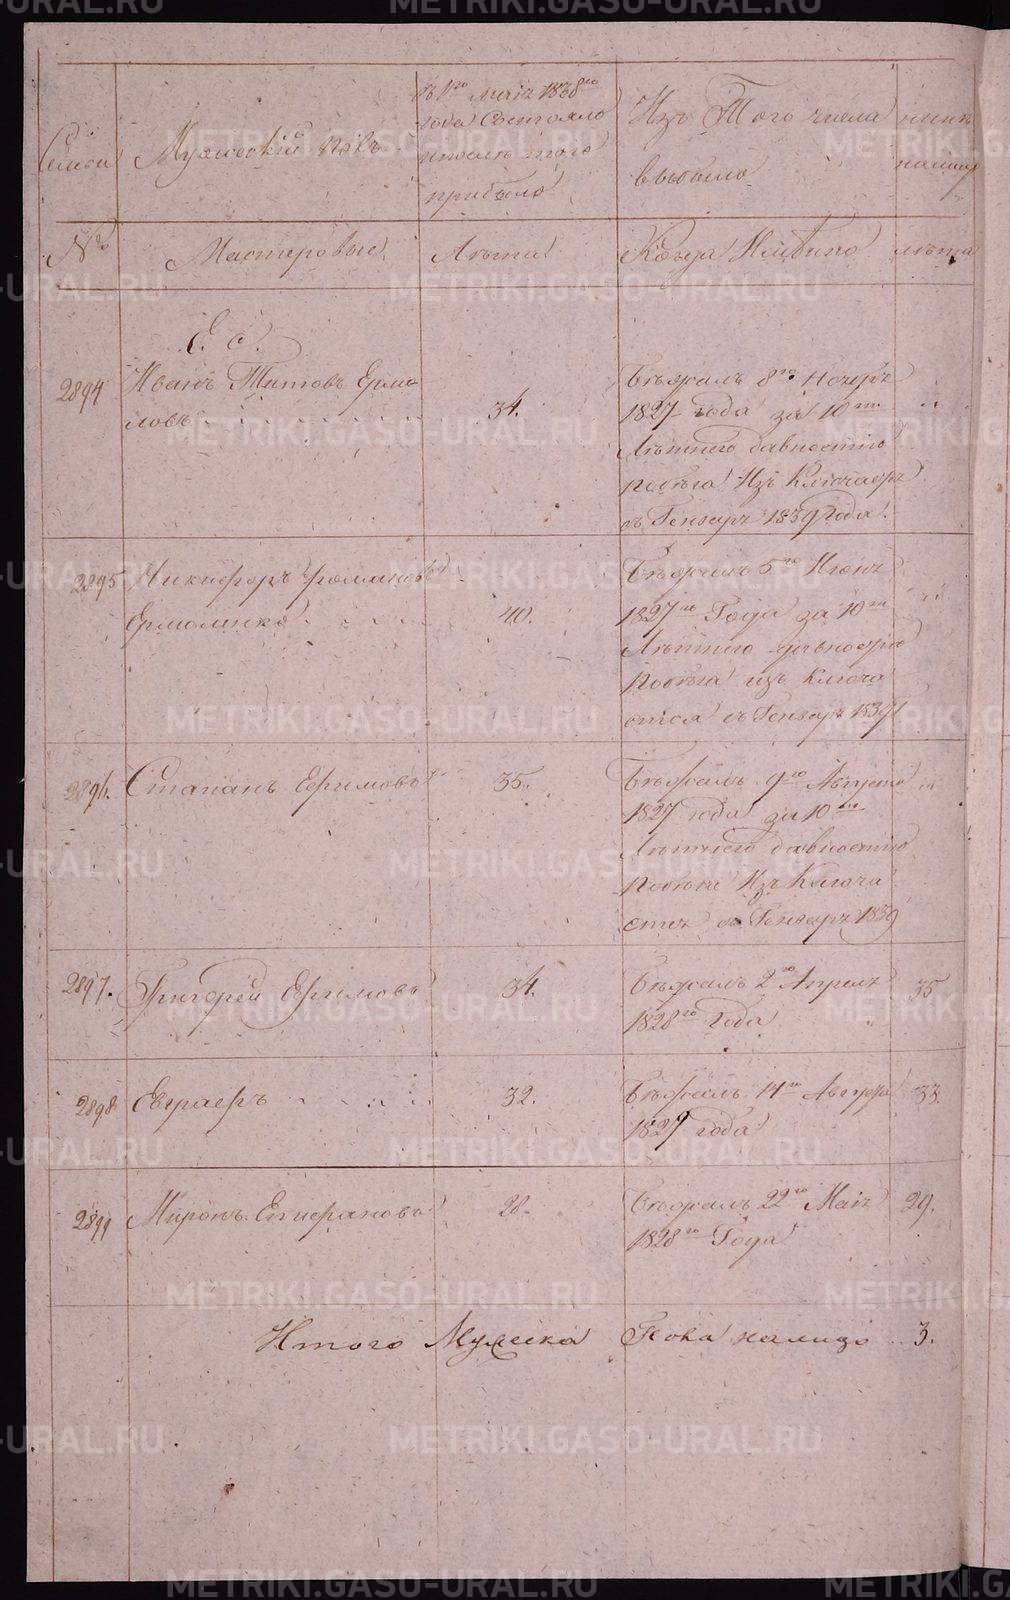 Семьи
Мужеский полъ.
съ 1го маія 1838го
года Состояло
послѣ того
прибыло
Изъ Того числа
выбыло
нынѣ
налицу
№
Мастеровые.
Лѣта
Когда Имянно
лѣта
Е. С.
2894
Иванъ Титовъ Ерма-
ловъ
34.
Бѣжалъ 8го Ноября
1827 года за 10ти
Лѣтнею давностію
побѣга Изъ Ключаеръ
въ Генварѣ 1839 Года.
"
2895
Никифоръ Романовъ
Ермолинко
40.
Бѣжалъ 5го Июня
1827го Года за 10ти
Лѣтнею давностію
Побѣга изъ Ключа
ется въ Генварѣ 1839
"
2896.
Стапанъ Ефимовъ
35.
Бѣжалъ 9го Августа
1827 года за 10ти
Лѣтнею давностію
Побѣга Изъ Ключа
ется въ Генварѣ 1839
"
2897.
Григорей Ефимовъ
34.
Бѣжалъ 2го Апреля
1828го Года
35
2898
Евграеръ
32.
Бѣжалъ 14го Августа
1829 года
33.
2899
Миронъ Епифановъ
28.
Бѣжалъ 22го Маія
1828го Года
29.
Итого Мужеска Пола налицо 3.
METRIKI.GASO-URAL.RU